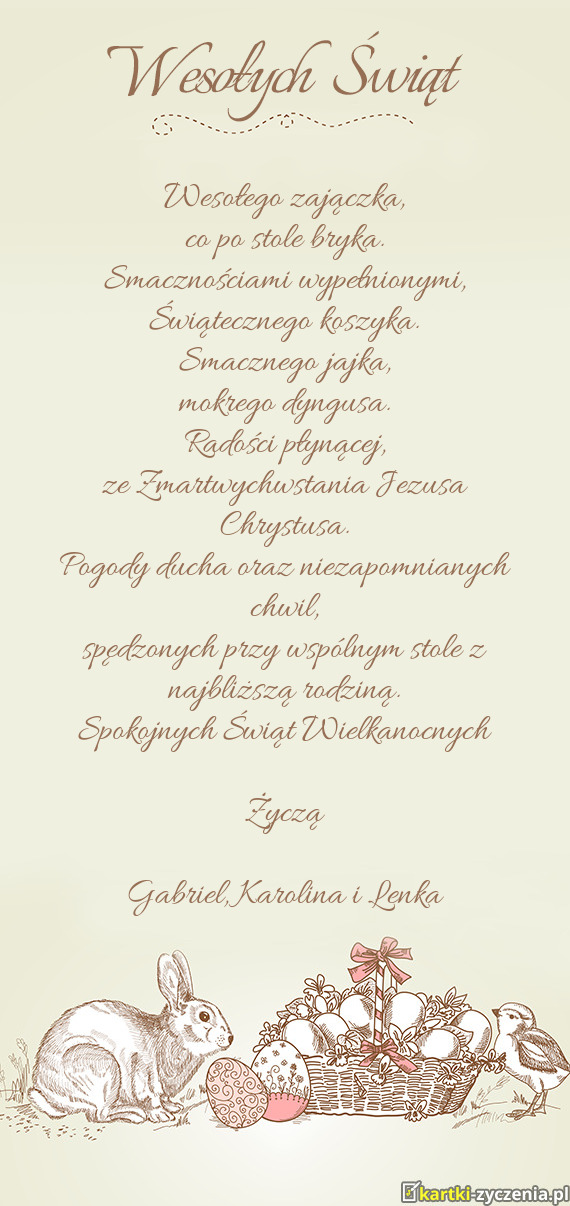 Wesołych Świąt
Wesołego zajączka,
co po stole bryka.
Smacznościami wypełnionymi,
Świątecznego koszyka.
Smacznego jajka,
mokrego dyngusa.
Radości płynącej,
ze Zmartwychwstania Jezusa
Chrystusa.
Pogody ducha oraz niezapomnianych
chwil,
spędzonych przy wspólnym stole z
najbliższą rodziną.
Spokojnych Świąt Wielkanocnych
Życzą
Gabriel,Karolina i Lenka
kartki-zyczenia.pl